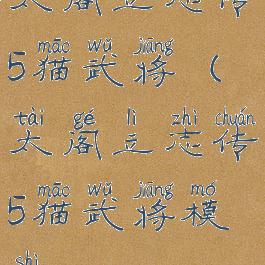 太阁立志传
māo wǔ jiāng
5猫武将（
tài gé lì zhì chuán
太阁立志传
māo wǔ jiāng mó
5猫武将模
shì